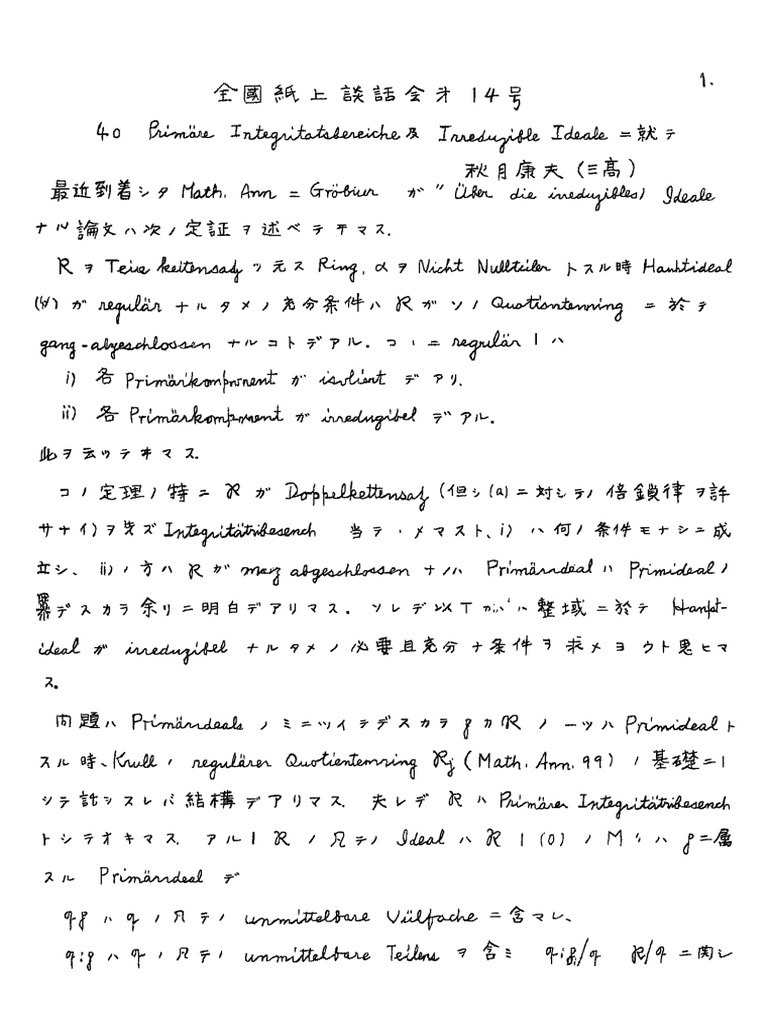 1.
全國紙上談話会才14号
40 Primäre Integritatsbereiche及 Irreduzible Ideale ニ就テ
秋月康夫(三高)
最近到着シタ Math. Ann ニ Gröbner ガ "Über die irreduziblen Ideale
ナル論文ハ次ノ定証ヲ述ベテヰマス.
R ヲ Teilerkettensatz ヲ元ス Ring, α ヲ Nicht Nullteiler トスル時 Hauptideal
(α) ガ regulär ナルタメノ充分条件ハ R ガソノ Quotientenring ニ於テ
ganz-abgeschlossen ナルコトデアル. コヽニ regulär トハ
i) 各 Primärkomponent ガ isoliert デアリ.
ii) 各 Primärkomponent ガ irreduzibel デアル.
此ヲ云ッテヰマス.
コノ定理ノ特ニ R ガ Doppelkettensatz (但シ (a) ニ対シテノ倍鎖律ヲ許
サナイ) ヲ Integritätsbereich 当テ メマスト、i) ハ何ノ条件モナシニ成
立シ、ii) ノ方ハ R ガ ganz abgeschlossen ナル Primärideal ハ Primideal ノ
冪デスカラ余リニ明白デアリマス. ソレデ以下 ハ整域ニ於テ Haupt-
ideal ガ irreduzibel ナルタメノ必要且充分ナ条件ヲ求メヨウト思ヒマ
ス.
問題ハ Primärideals ノミニツイテデスカラ R ノ一ツノ Primideal ト
スル時、Krull ノ regulärer Quotientenring (Math. Ann. 99) ノ基礎ニ
シテ スレバ結構デアリマス. 夫レデ R ハ Primärer Integritätsbereich
トシテオキマス. R ノ凡テノ Ideal ハ R ト (0) ノ ニ属
スル Primärideal デ
ハ q ノ凡テノ unmittelbare Vielfache ニ含マレ、
ハ q ノ凡テノ unmittelbare Teilers ヲ含ミ R/q ニ関シ